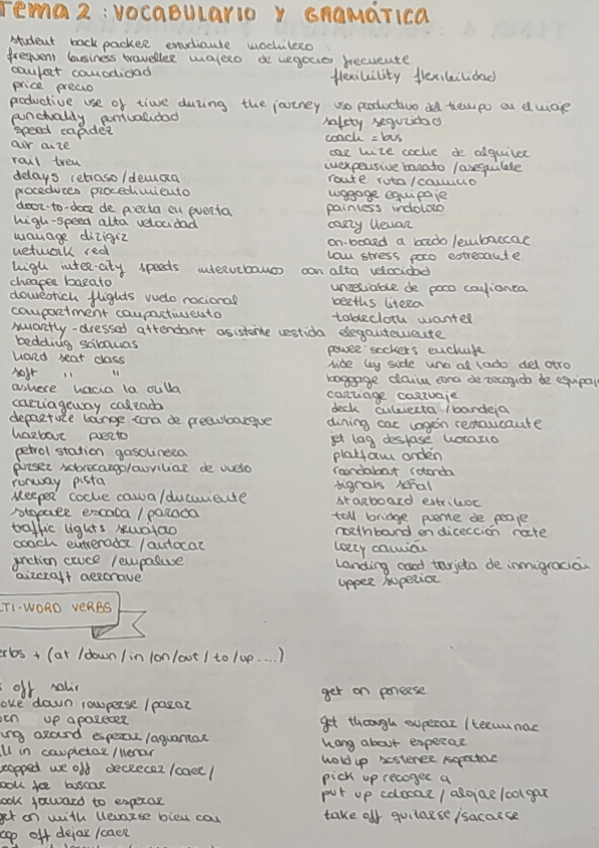 Tema 2: VOCABULARIO Y GRAMÁTICA
student back packer estudiante mochilero
frequent business traveller viajero de negocios frecuente
comfort comodidad flexibility flexibilidad
price precio
productive use of time during the journey uso productivo del tiempo en el viaje
punctuality puntualidad safety seguridad
speed rapidez coach = bus
air aire car hire coche de alquiler
rail tren inexpensive barato /asequible
delays retraso/demora route ruta/camino
procedures procedimiento luggage equipaje
door-to-door de puerta en puerta painless indoloro
high-speed alta velocidad carry llevar
manage dirigir on-board a bordo/embarcar
network red low stress poco estresante
high inter-city speeds interurbanos con alta velocidad
cheaper barato unreliable de poca confianza
domestich flights vuelo nacional berths litera
compartment compartimento tablecloth mantel
smartly-dressed attendant asistente vestida elegantemente
bedding sábanas power sockets enchufe
hard seat class side by side uno al lado del otro
soft " " baggage claim zona de recogida de equipaje
ashore hacia la orilla carriage carruaje
carriageway calzada deck cubierta/bandeja
departure lounge zona de preembarque dining car vagón restaurante
harbour puerto jet lag desfase horario
petrol station gasolinera platform andén
purser sobrecargo/auxiliar de vuelo roundabout rotonda
runway pista signals señal
sleeper coche cama/durmiente starboard estribor
stopover escala / parada toll bridge puente de peaje
traffic lights semáforo northbound en dirección norte
coach entrenador /autocar lorry camión
junction cruce /empalme landing card tarjeta de inmigración
aircraft aeronave upper superior
LTI-WORD VERBS
erbs + (at /down/in/on/out/to/up....)
off salir get on ponerse
oke down romperse/parar
up aparecer get through superar /terminar
ng around esperar/aguantar hang about esperar
ll in completar/llenar hold up sostener /soportar
ropped me off decrecer/caer/ pick up recoger a
ook for buscar put up colocar/alojar/colgar
ook forward to esperar take off quitarse/sacarse
et on with llevarse bien con
rop off dejar/caer